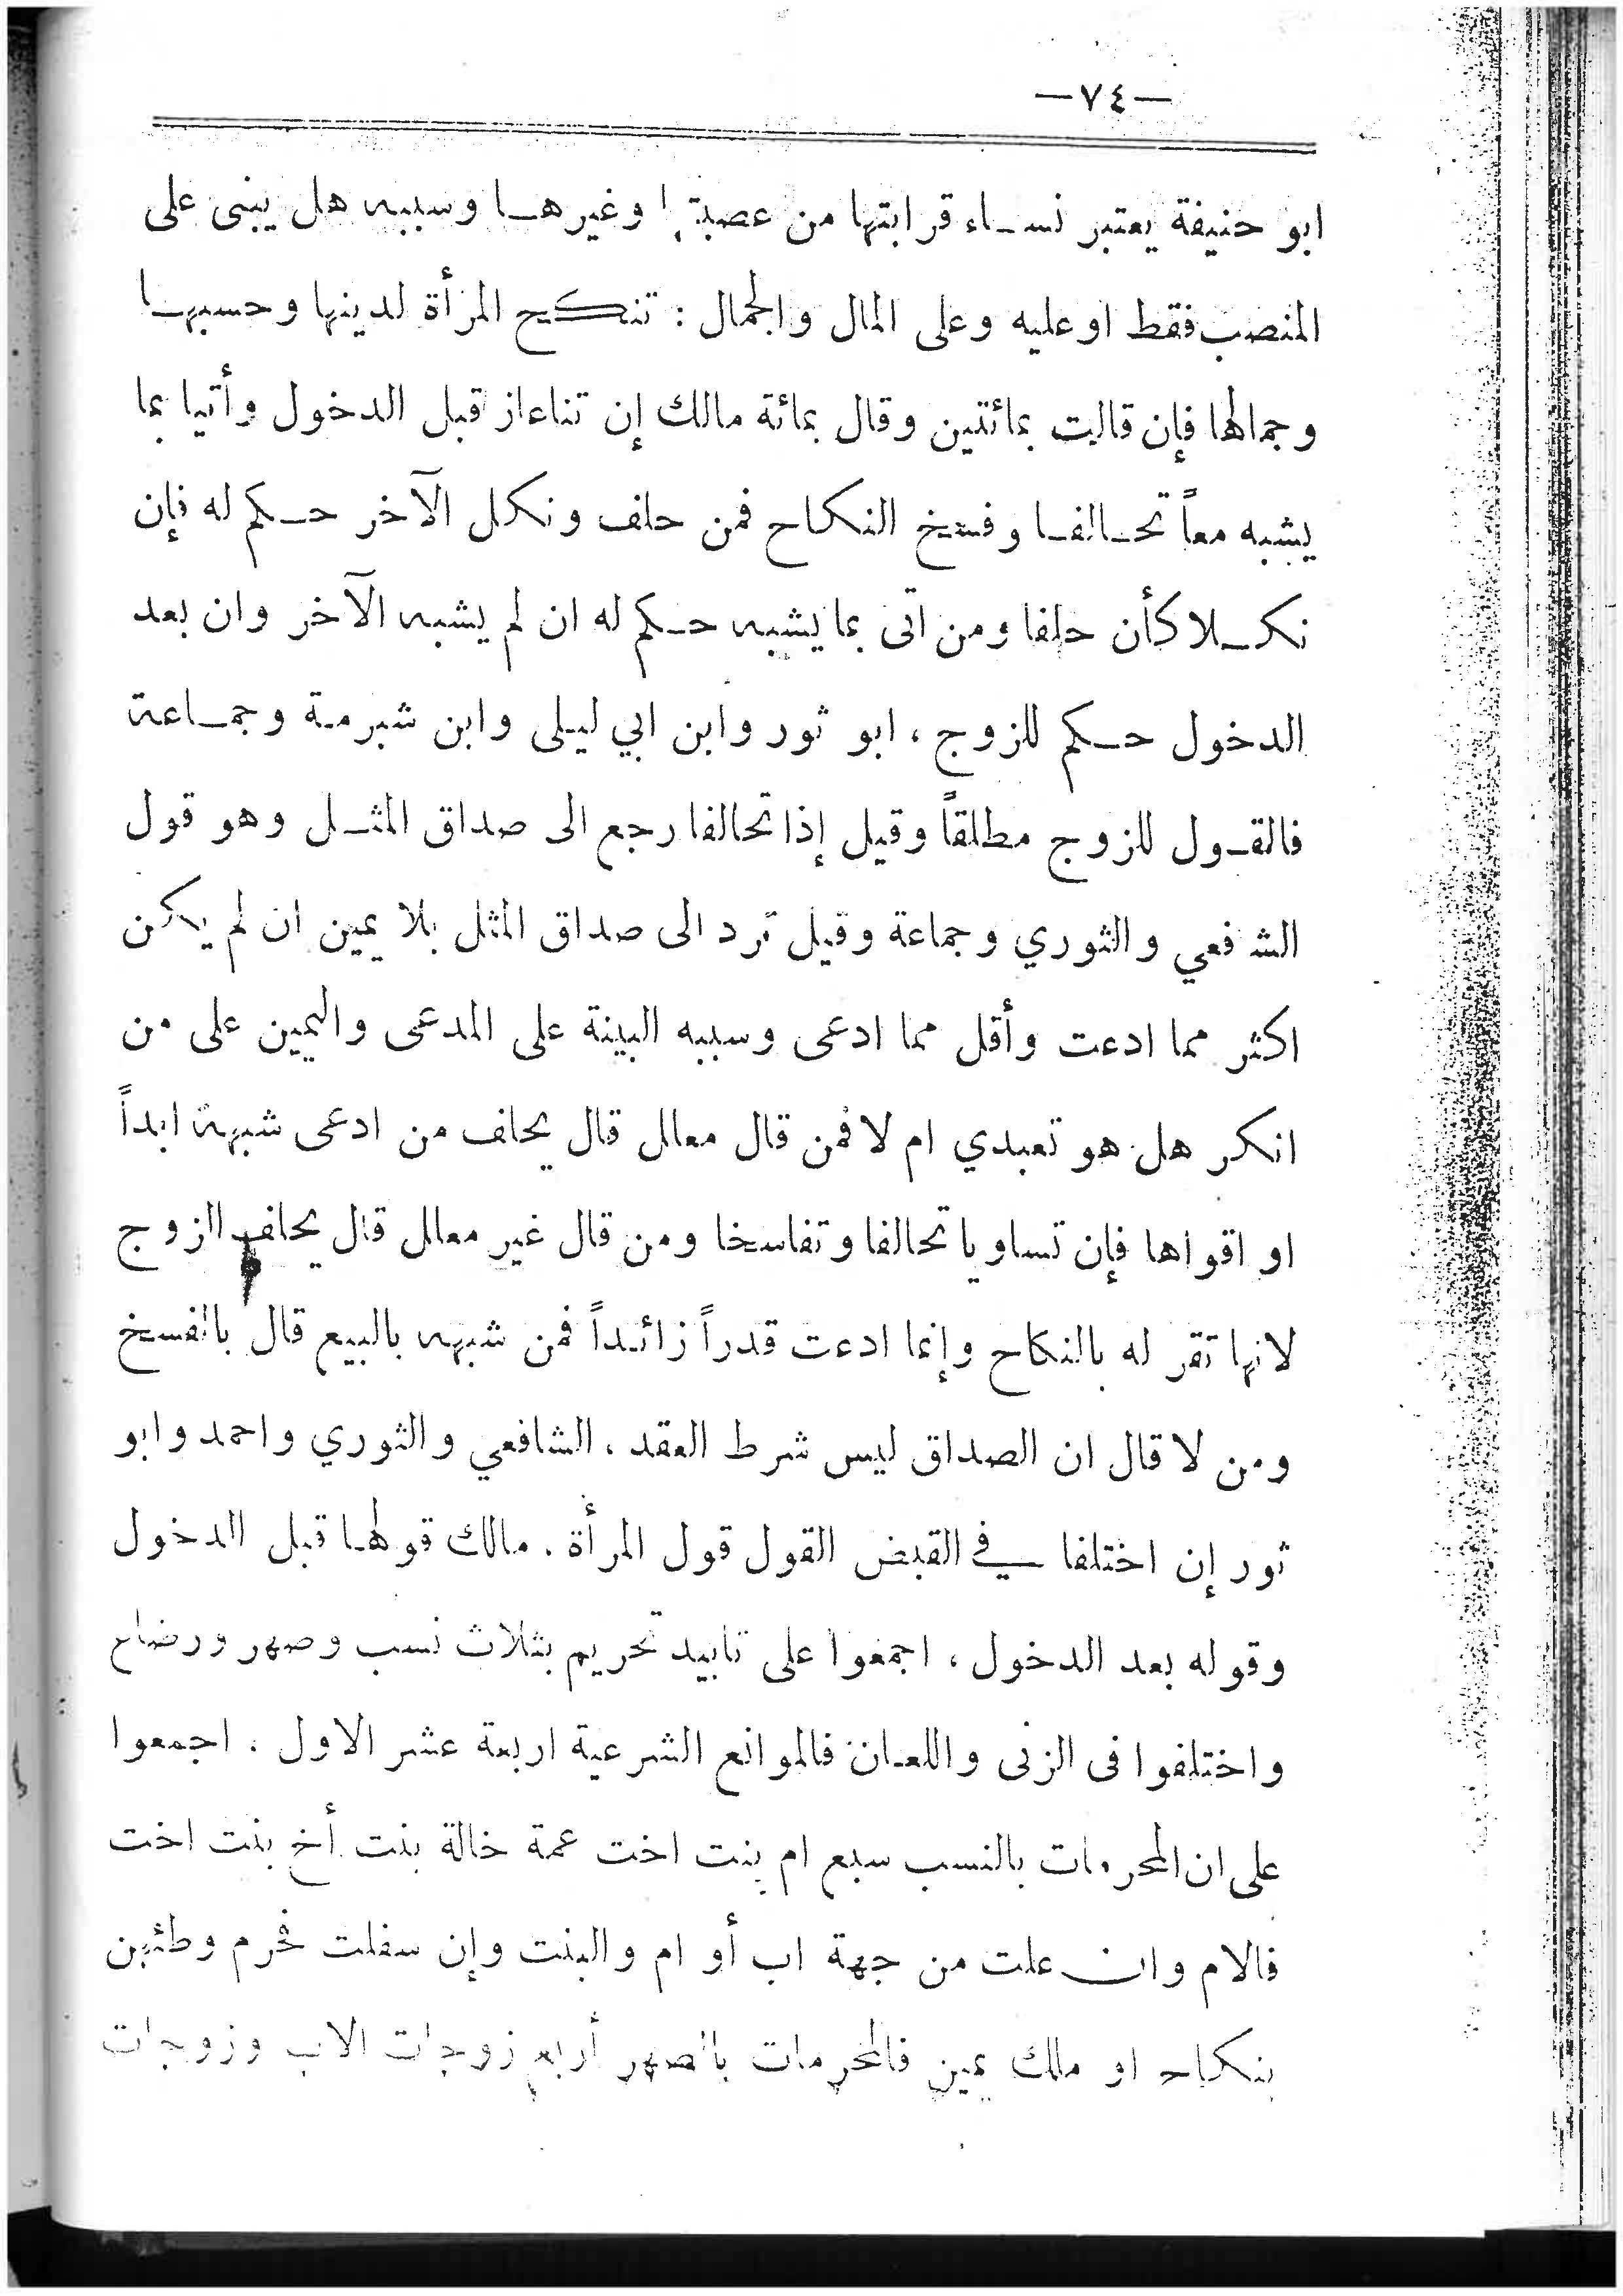 —٧٤—
ابو حنيفة يعتبر نساء قرابتها من عصبتها وغيرها وسببه هل يبنى على
المنصب فقط او عليه وعلى المال والجمال : تنكح المرأة لدينها وحسبها
وجمالها فإن قالت بمائتين وقال بمائة مالك إن تناعاز قبل الدخول وأتيا بما
يشبه معاً تحالفا وفسخ النكاح فمن حلف ونكل الآخر حكم له فإن
نكلا كأن حلفا ومن اتى بما يشبه حكم له ان لم يشبه الآخر وان بعد
الدخول حكم للزوج ، ابو ثور وابن ابي ليلى وابن شبرمة وجماعة
فالقول للزوج مطلقاً وقيل إذا تحالفا رجع الى صداق المثل وهو قول
الشافعي والثوري وجماعة وقيل ترد الى صداق المثل بلا يمين ان لم يكن
اكثر مما ادعت وأقل مما ادعى وسببه البينة على المدعى واليمين على من
انكر هل هو تعبدي ام لا فمن قال معلل قال يحلف من ادعى شبهة ابداً
او اقواها فإن تساويا تحالفا وتفاسخا ومن قال غير معلل قال يحلف الزوج
لانها تقر له بالنكاح وإنما ادعت قدراً زائداً فمن شبهه بالبيع قال بالفسخ
ومن لا قال ان الصداق ليس شرط العقد ، الشافعي والثوري واحمد وابو
ثور إن اختلفا في القبض القول قول المرأة . مالك قولها قبل الدخول
وقوله بعد الدخول ، اجمعوا على تابيد تحريم بثلاث نسب وصهر ورضاع
واختلفوا فى الزنى واللعان فالموانع الشرعية اربعة عشر الاول . اجمعوا
على ان المحرمات بالنسب سبع ام بنت اخت عمة خالة بنت أخ بنت اخت
فالام وان علت من جهة اب أو ام والبنت وإن سفلت فحرم وطئهن
بنكاح او ملك يمين فالمحرمات بالصهر أربع زوجات الاب وزوجات